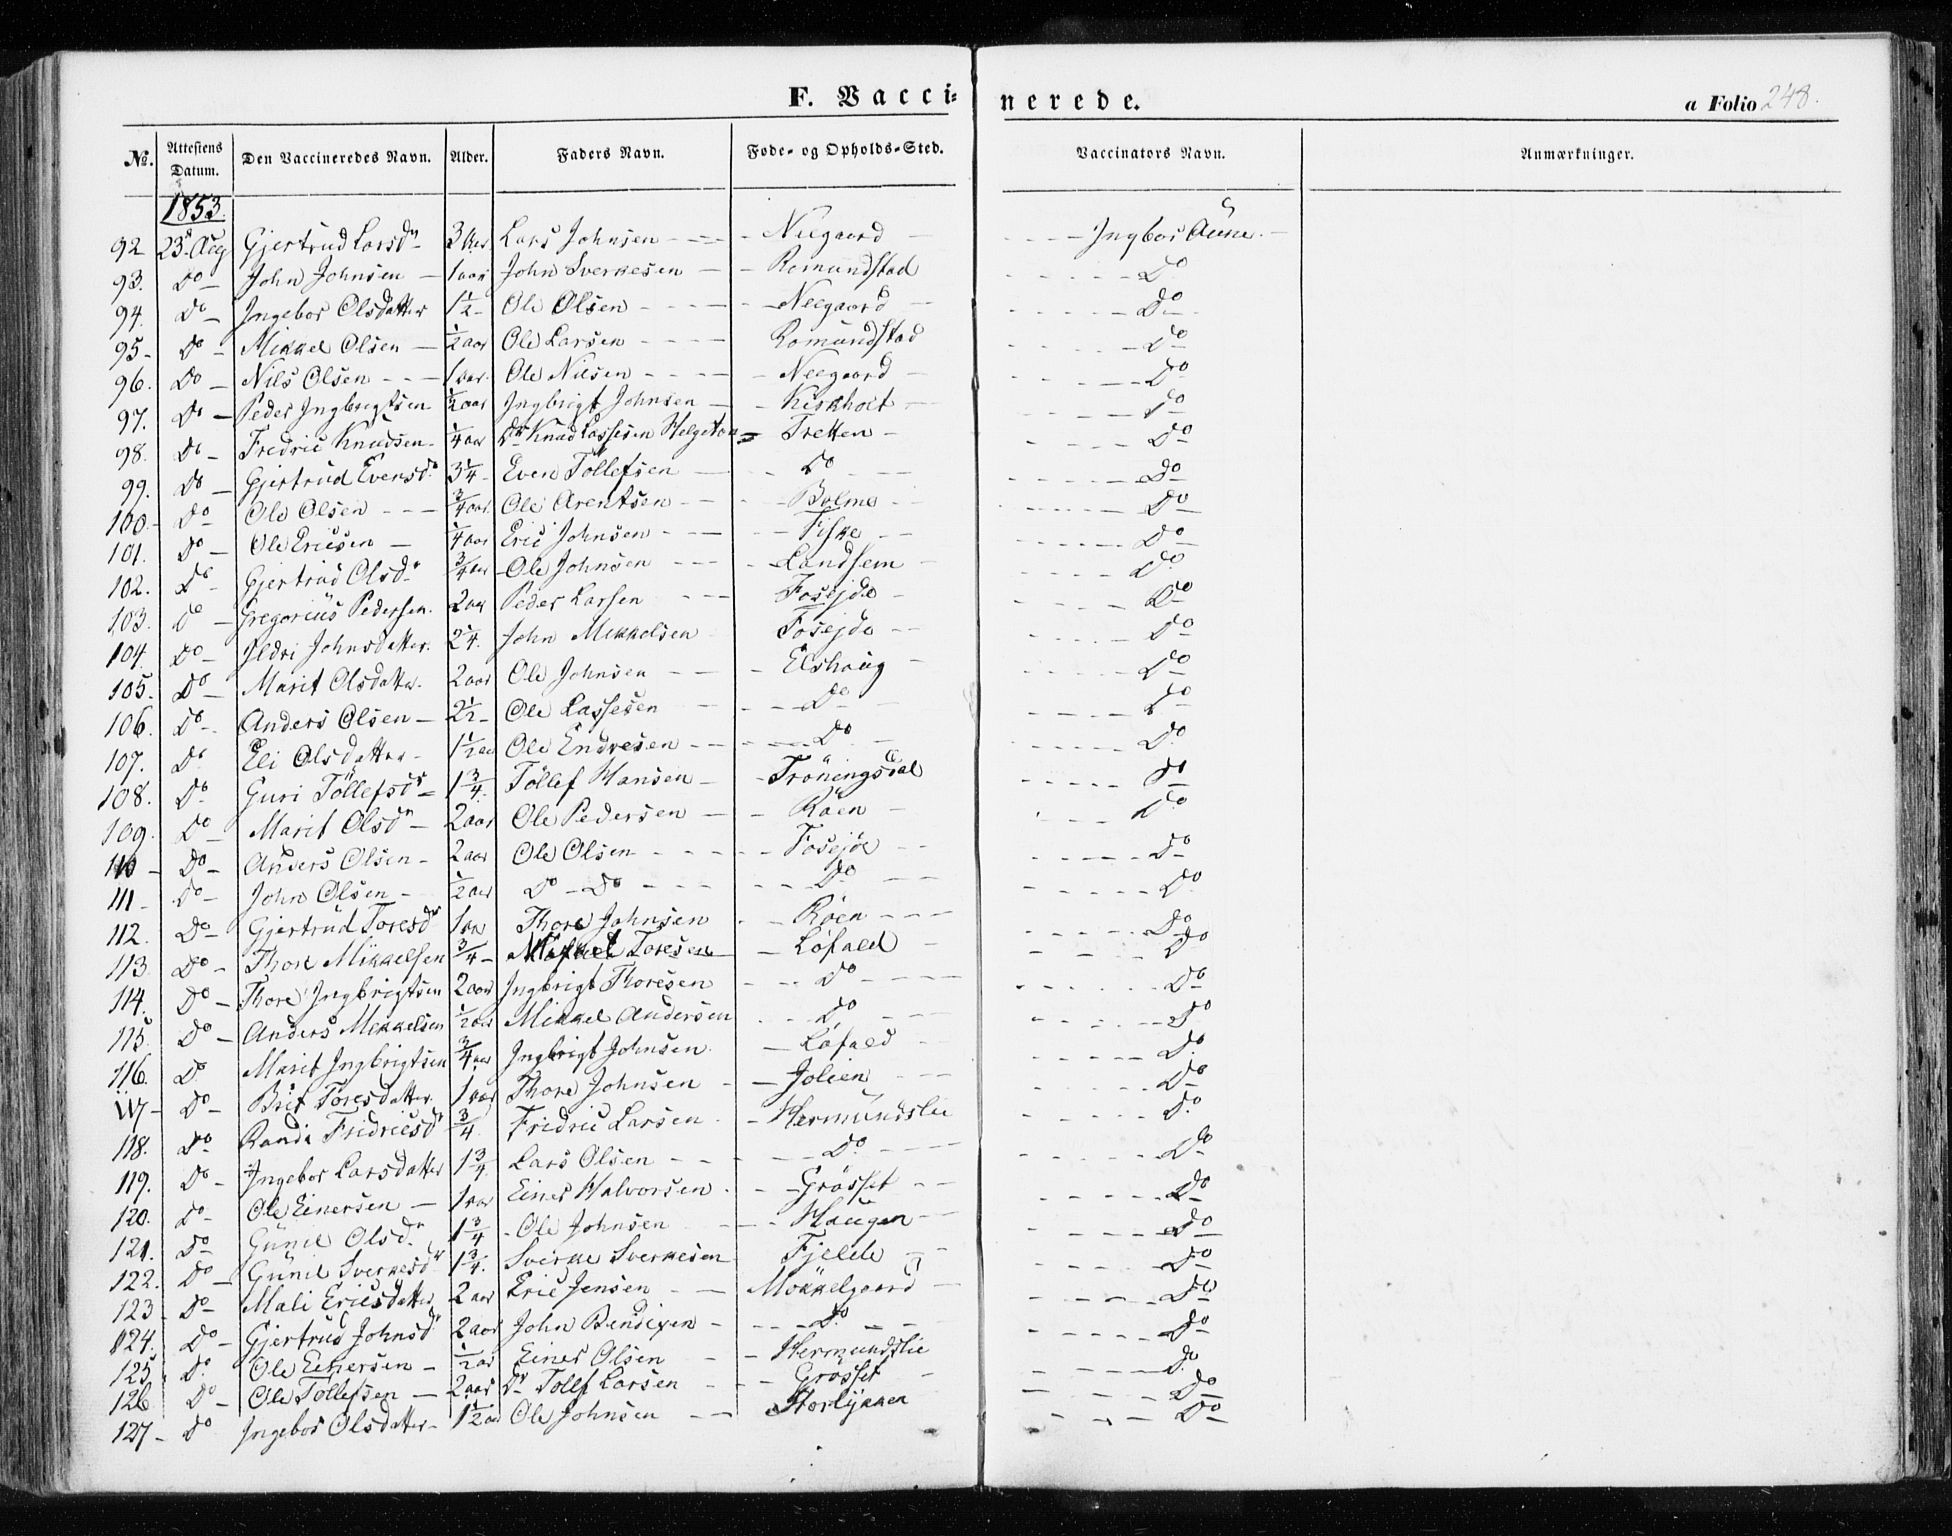 F. Vaccinerede.
a Folio 248.
No. Attestens Datum. Den Vaccineredes Navn. Alder. Faders Navn. Føde- og Opholds-Sted. Vaccinators Navn. Anmærkninger.
1853.
92 23. Aug Gjertrud Larsdr 3 Lars Johnsen Neegaard Ingbor Aune
93. Do John Johnsen 1 aar John Sverkesen Romundstad Do
94. Do Ingebor Olsdatter 1½ Ole Olsen Neegaard Do
95 Do Mikkel Olsen ½ aar Ole Larsen Romundstad Do
96. Do Nils Olsen 1 aar Ole Nilsen Neegaard Do
97. Do Peder Ingbrigtsen ½ aar Ingbrigt Johnsen Kirkholt Do
98. Do Fredric Knudsen ¼ aar Knud Lassesen Helgeton Tretten Do
99. Do Gjertrud Evensd. 3¼ Even Tollefsen Do Do
100. Do Ole Olsen ¾ aar Ole Arentsen Bolme Do
101. Do Ole Ericsen ¼ aar Eric Johnsen Fiske Do
102. Do Gjertrud Olsdr ¾ aar Ole Johnsen Landsem Do
103. Do Gregorius Pedersen 2 aar Peder Larsen Fosejde Do
104. Do Ildri Johnsdatter 2¼ John Mikkelsen Fosejde Do
105. Do Marit Olsdatter 2 aar Ole Johnsen Elshaug Do
106. Do Anders Olsen 2½ Ole Lassesen Do Do
107. Do Eli Olsdatter 1½ aar Ole Endresen Do Do
108. Do Guri Töllefsdr 1¾ Töllef Hansen Tröningsdal Do
109. Do Marit Olsdr 2 aar Ole Pedersen Röen Do
110 Do Anders Olsen 2 aar Ole Olsen Fosejde Do
111 Do John Olsen ½ aar Do Do Do Do
112. Do Gjertrud Toresdr 1 aar Thore Johnsen Röen Do
113 Do Thore Mikkelsen ¾ Mikkel Toresen Löfald Do
114. Do Thore Ingbrigtsen 2 aar Ingbrigt Thoresen Do Do
115. Do Anders Mikkelsen ½ aar Mikkel Andersen Do Do
116. Do Marit Ingbrigtsen ¾ aar Ingbrigt Johnsen Löfald Do
117 Do Brit Toresdatter 1 aar Thore Johnsen Jolien Do
118. Do Randi Fridricsd ¾ Fridric Larsen Hermundslie Do
119. Do Ingebor Larsdatter 1¾ Lars Olsen Do Do
120. Do Ole Einersen 1 aar Einer Halvorsen Grösset Do
121. Do Gunil Olsdr 1¾ Ole Johnsen Haugen Do
122. Do Gunil Sverkesdr 1¾ Sverke Sverkesen Fjelde Do
123 Do Mali Ericsdatter 2 aar Eric Jensen Mökkelgaard Do
124. Do Gjertrud Johnsd 2 aar John Bendixen Do Do
125 Do Ole Einersen ½ aar Einer Olsen Hermundslie Do
126 Do Ole Tollefsen 2 aar Tollef Larsen Grösset Do
127 Do Ingebor Olsdatter 1½ aar Ole Johnsen Storlykken Do